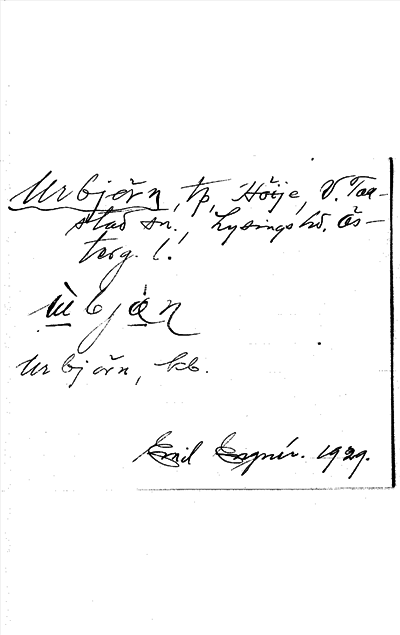 Urbjörn, tp, Höije, V. Tol-
stad sn., Lysings hd. Ös-
terg. l.
ùbjön
Urbjörn, kb.
Emil Engnér. 1929.